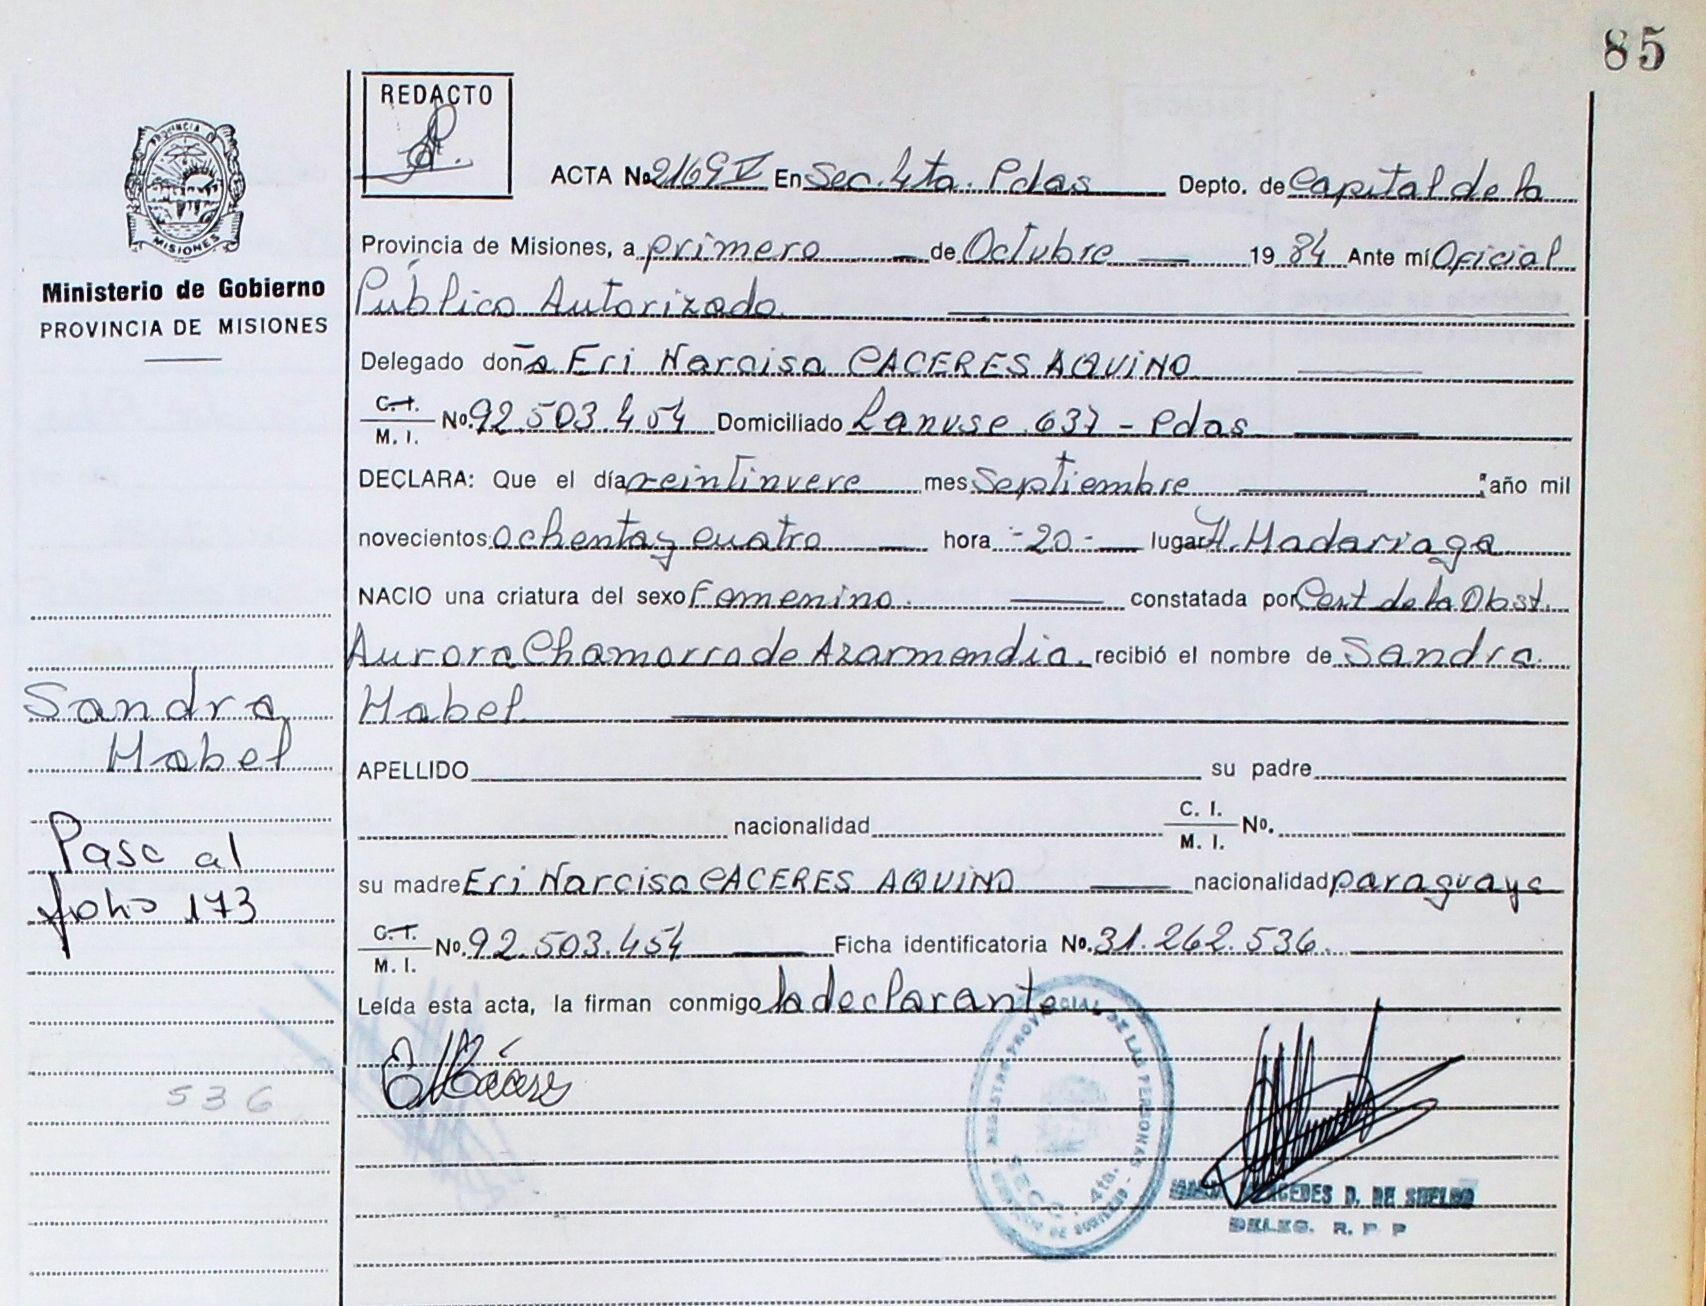 85
REDACTO
PROVINCIA D
MISIONES
Ministerio de Gobierno
PROVINCIA DE MISIONES
ACTA No. 2169 V En Sec. 4ta. Pdas Depto. de Capital de la
Provincia de Misiones, a primero de Octubre 1984 Ante mí Oficial
Público Autorizado
Delegado doña Eri Narcisa CACERES AQUINO
C. I. / M. I. No. 92.503.454 Domiciliado Lanuse 637 - Pdas
DECLARA: Que el día veintinueve mes Septiembre año mil
novecientos ochenta y cuatro hora -20- lugar H. Madariaga
NACIO una criatura del sexo Femenino. constatada por Cert de la Obst.
Aurora Chamorro de Azarmendia. recibió el nombre de Sandra
Mabel
APELLIDO su padre
nacionalidad C. I. / M. I. No.
su madre Eri Narcisa CACERES AQUINO nacionalidad paraguaya
C. I. / M. I. No. 92.503.454 Ficha identificatoria No. 31.262.536.
Leída esta acta, la firman conmigo la declarante
Sandra
Mabel
Pasa al
folio 173
536
REGISTRO PROVINCIAL DE LAS PERSONAS
SECC. 4ta.
MERCEDES D. DE
DELEG. R. P. P